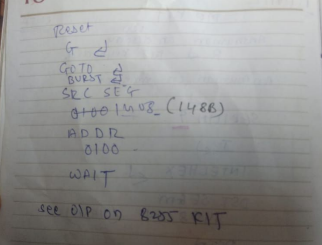 Reset
G ↵
GOTO ↵
BURST ↵
SRC SEG
0100 (148B)
ADDR
0100
WAIT
see O/P on KIT